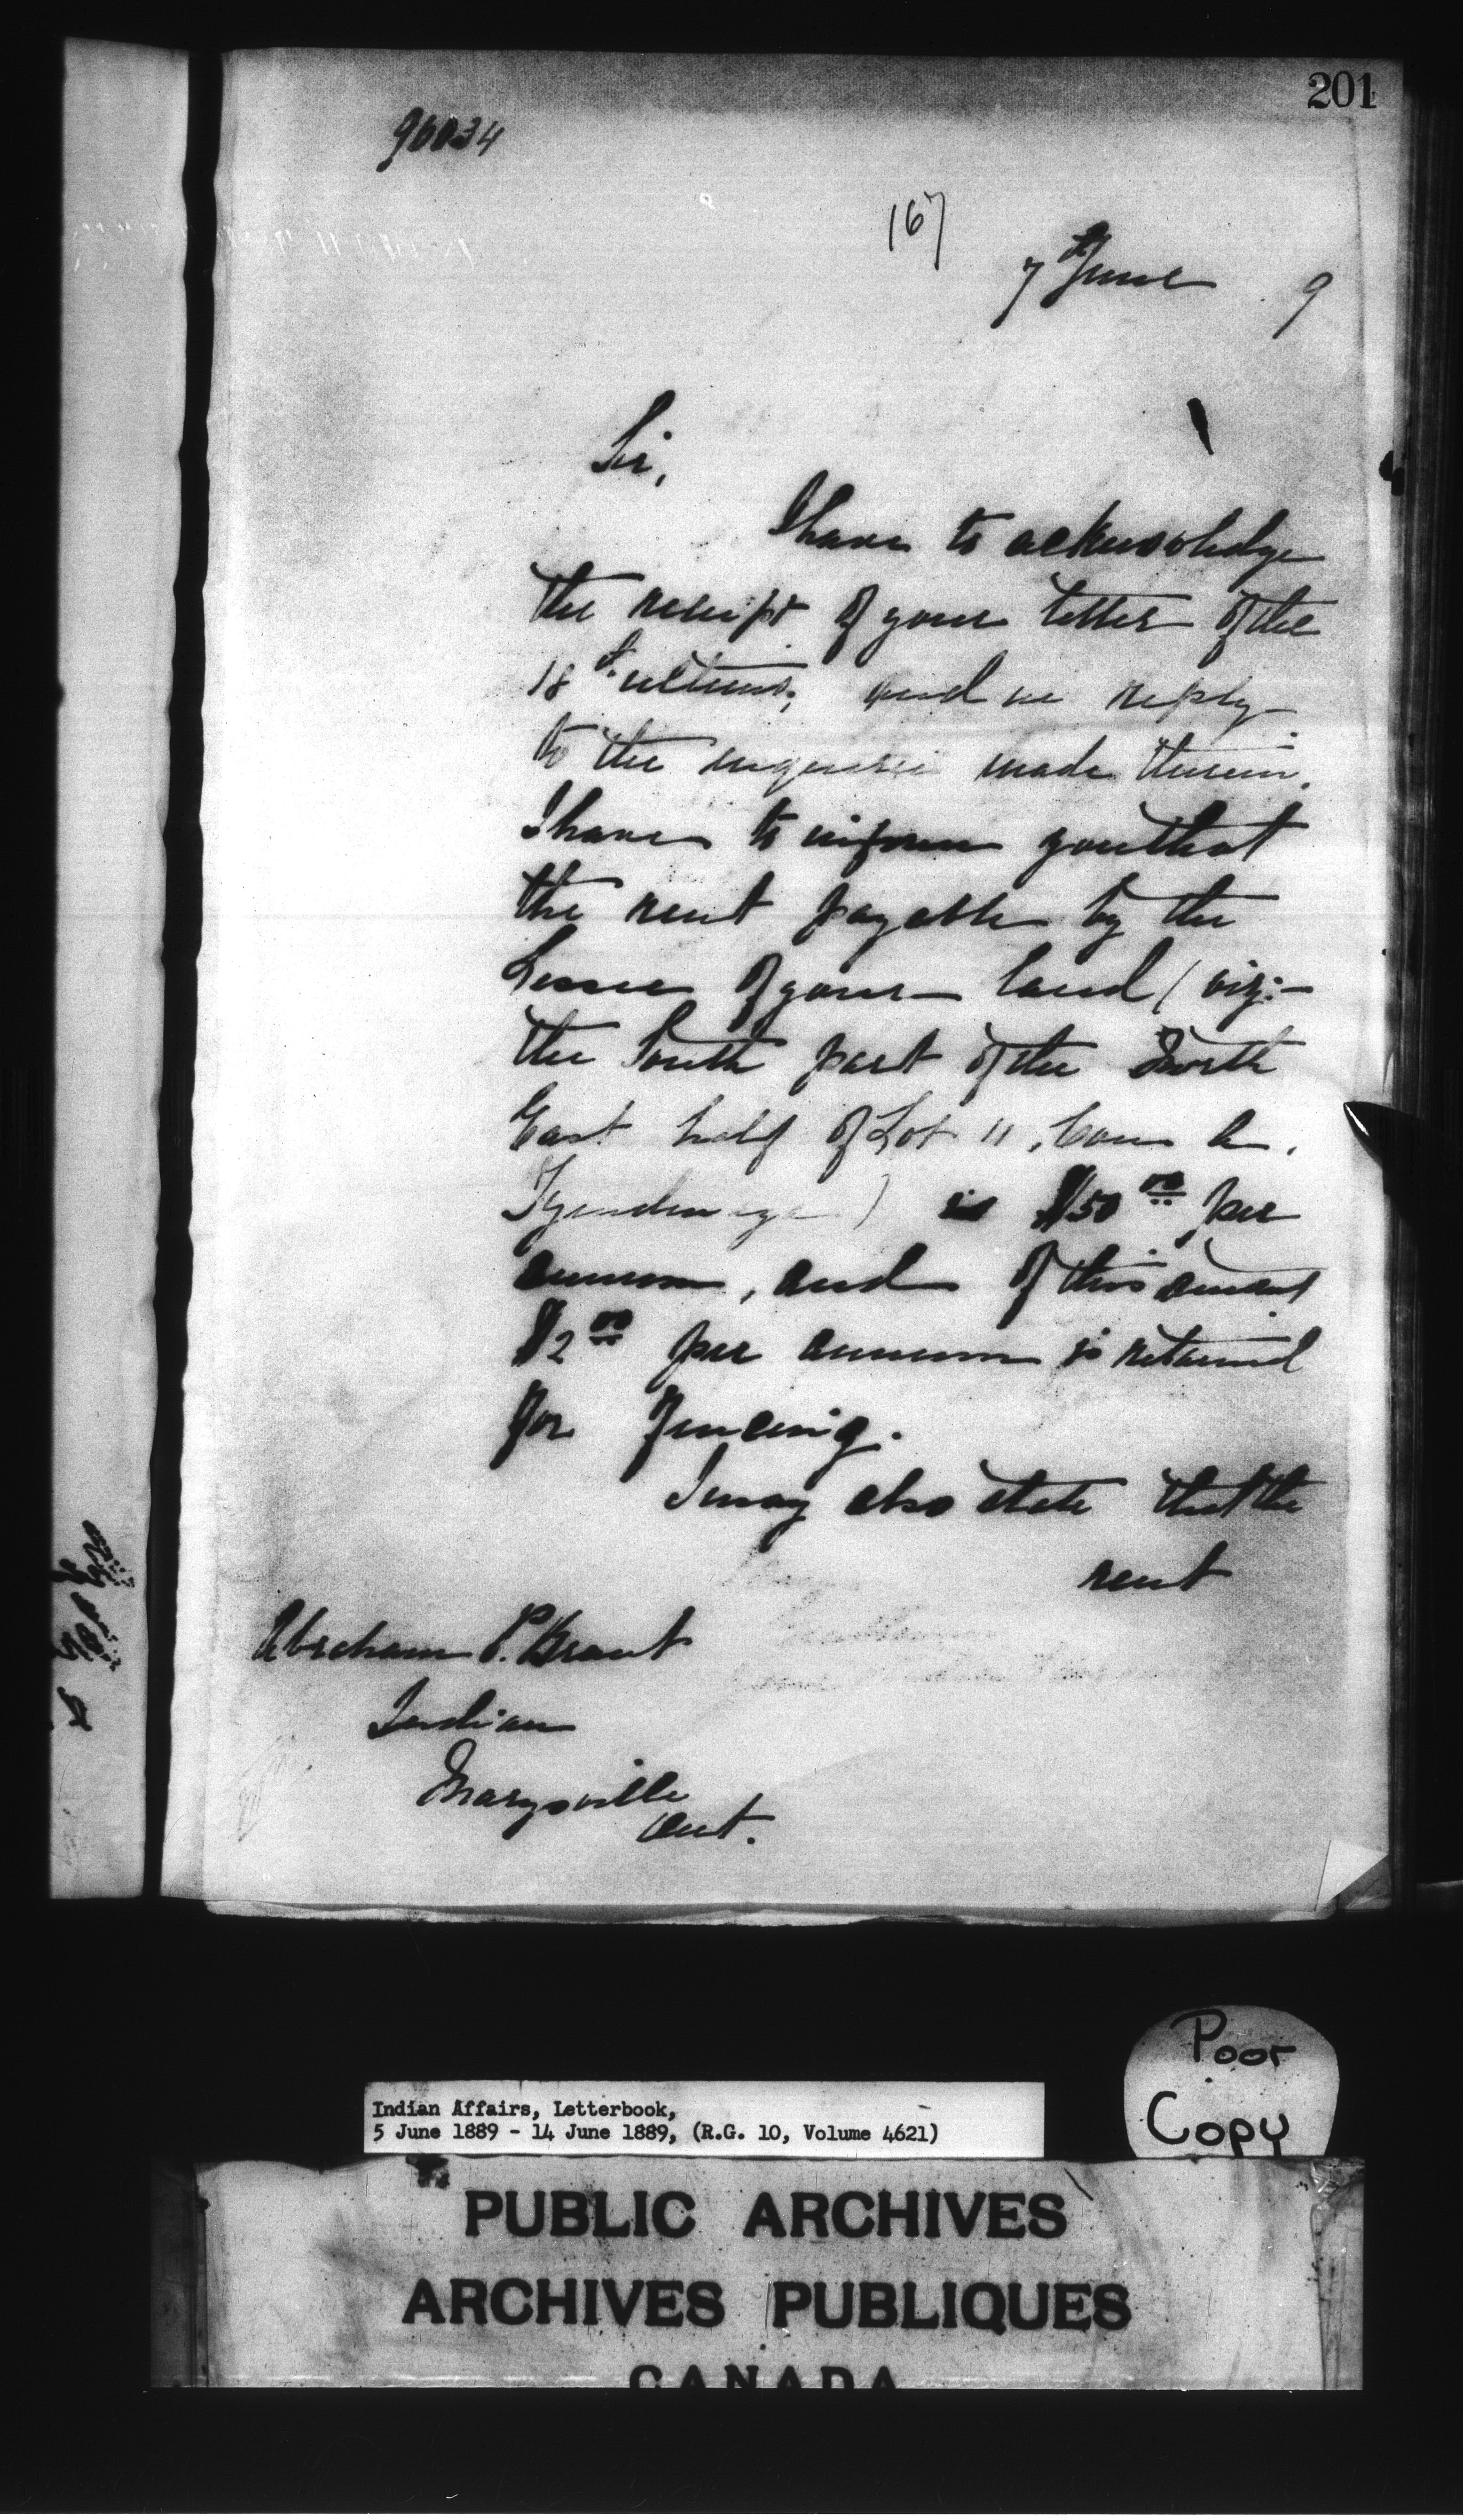 201
96034
167
7th June 9
Sir,
I have to acknowledge
the receipt of your letter of the
18th ultimo; and in reply
to the inquiries made therein,
I have to inform you that
the rent payable by the
Lessee of your land (viz:-
the South part of the North
East half of Lot 11, Con A,
Tyendinaga) is $50 00 per
annum, and of this amount
$2 00 per annum is retained
for fencing.
I may also state that the
rent
Abraham P. Brant
Indian
Marysville
Ont.
Poor
Copy
Indian Affairs, Letterbook,
5 June 1889 - 14 June 1889, (R.G. 10, Volume 4621)
PUBLIC ARCHIVES
ARCHIVES PUBLIQUES
CANADA